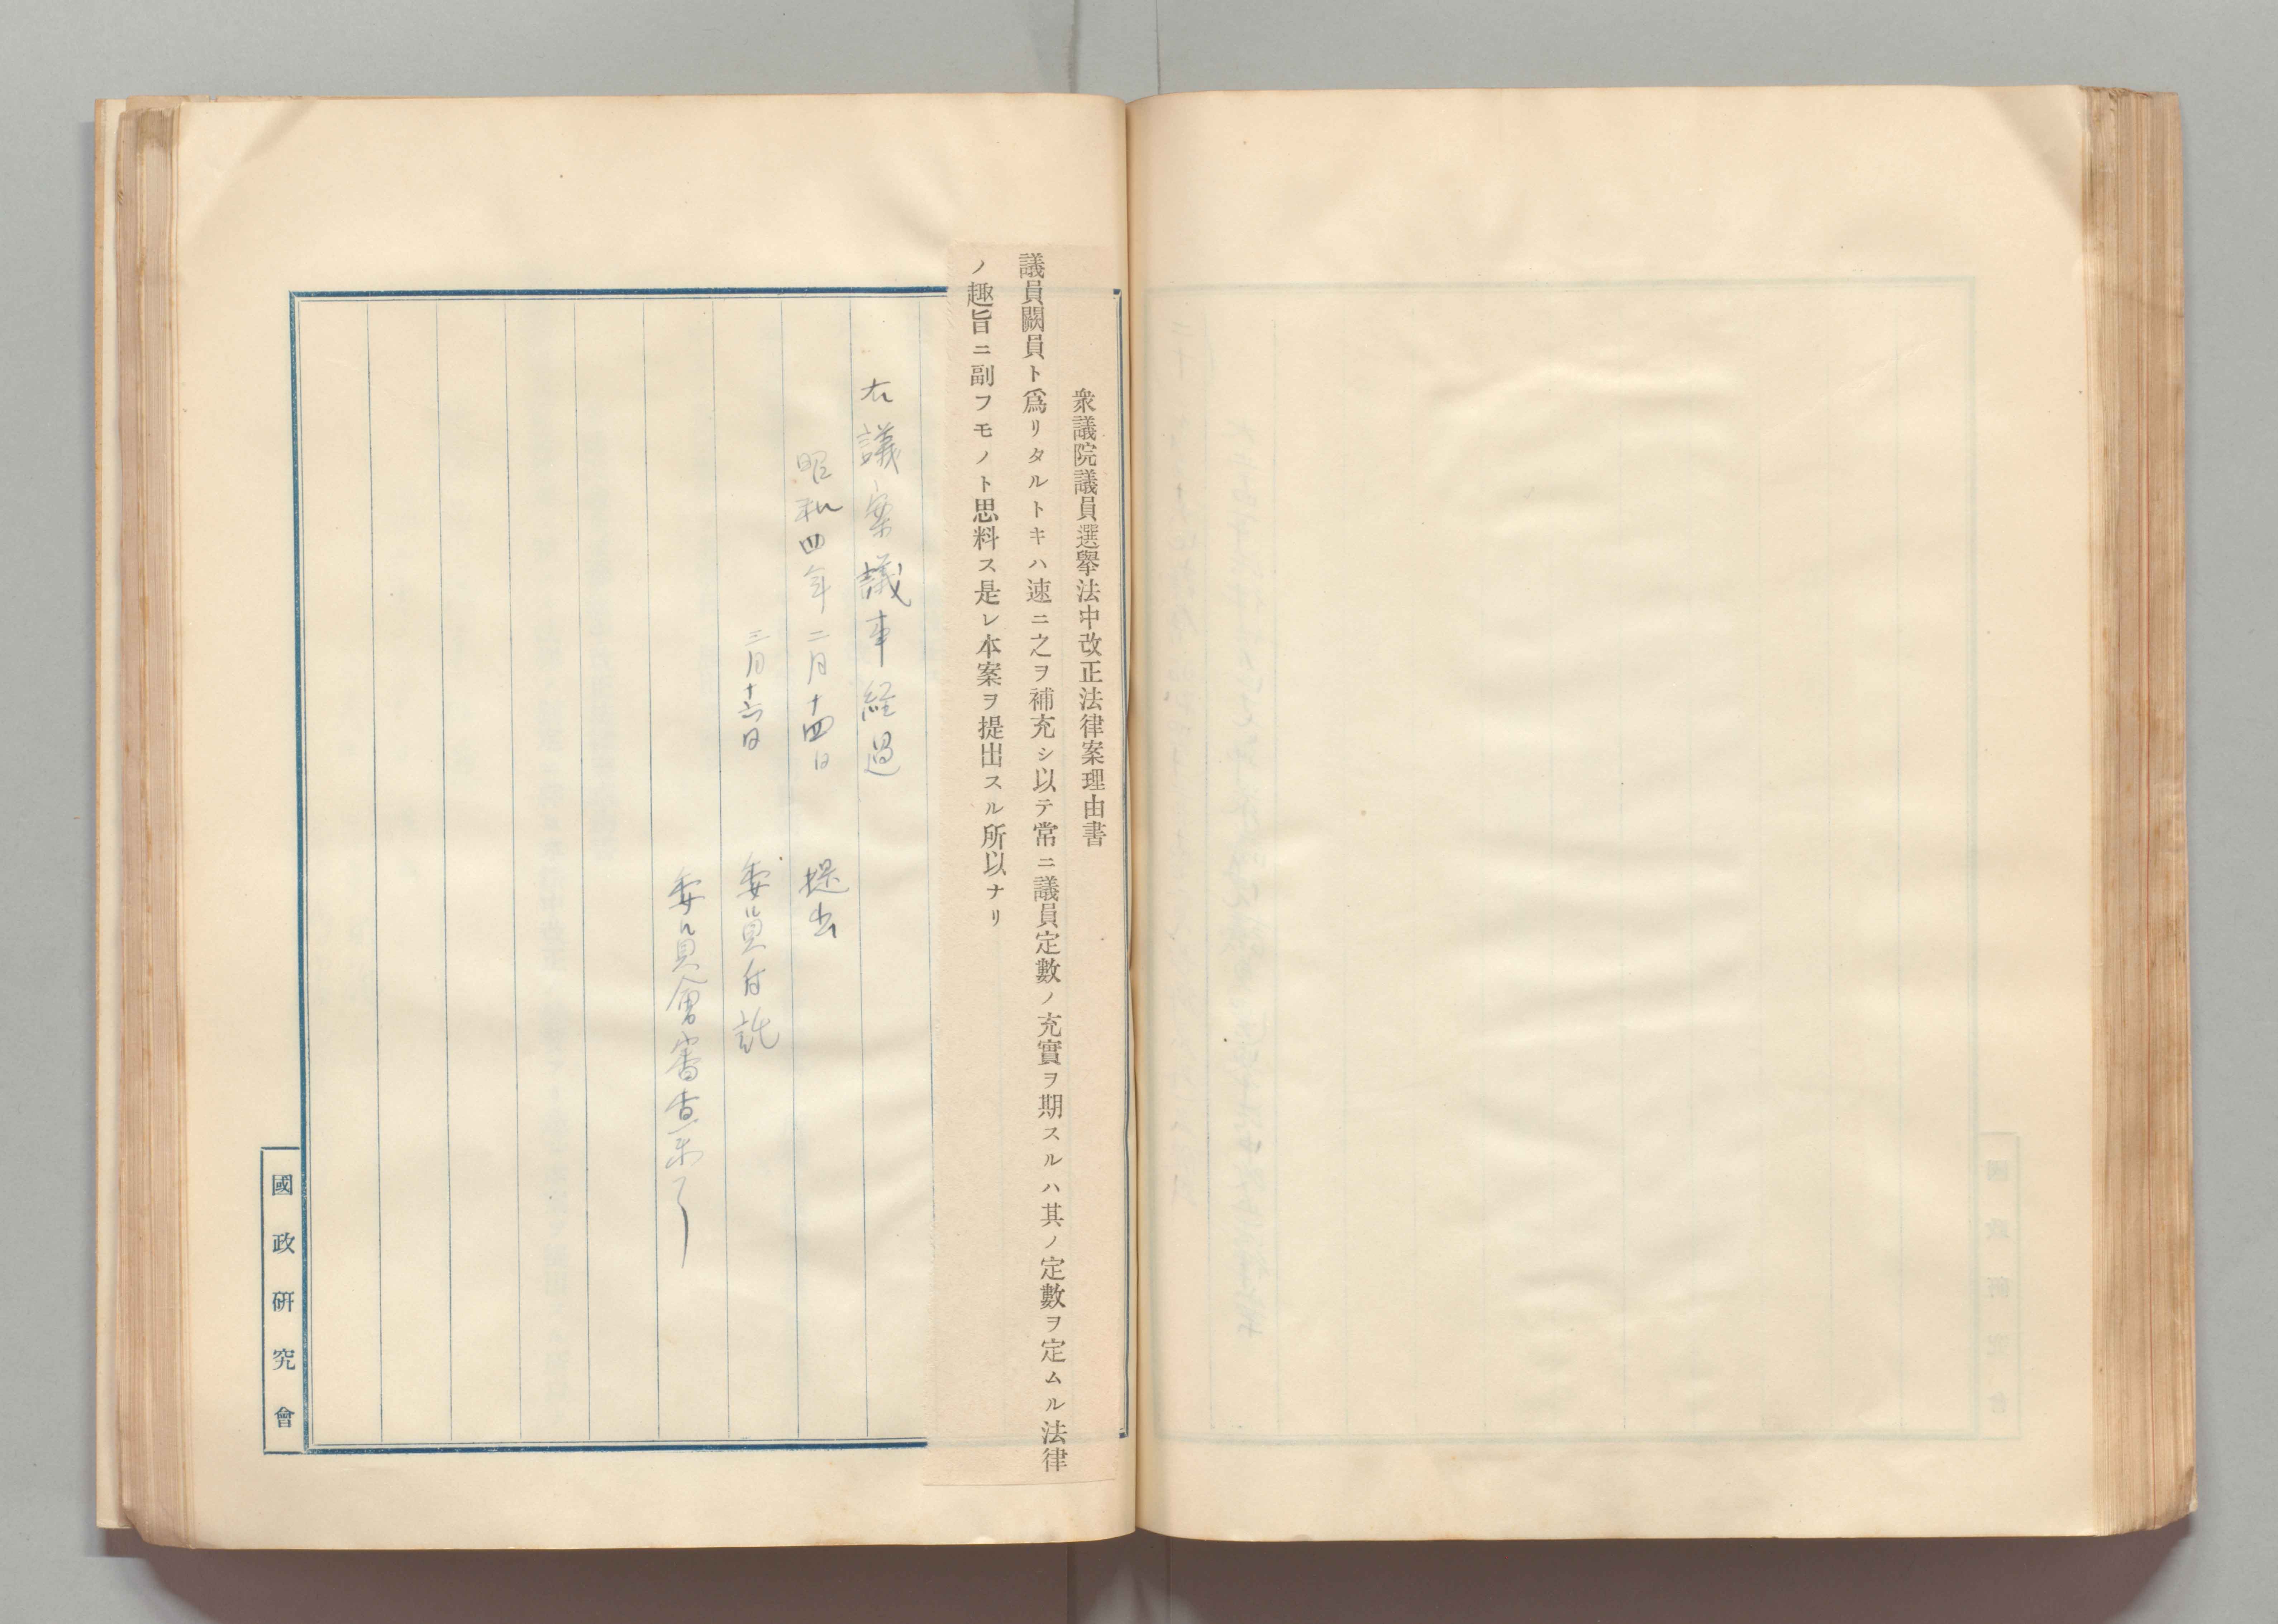 衆議院議員選擧法中改正法律案理由書
議員闕員ト爲リタルトキハ速ニ之ヲ補充シ以テ常ニ議員定數ノ充實ヲ期スルハ其ノ定數ヲ定ムル法律
ノ趣旨ニ副フモノト思料ス是レ本案ヲ提出スル所以ナリ
右議案議事経過
昭和四年二月十四日 提出
三月十六日 委員付託
委員會審査未了
國政研究會